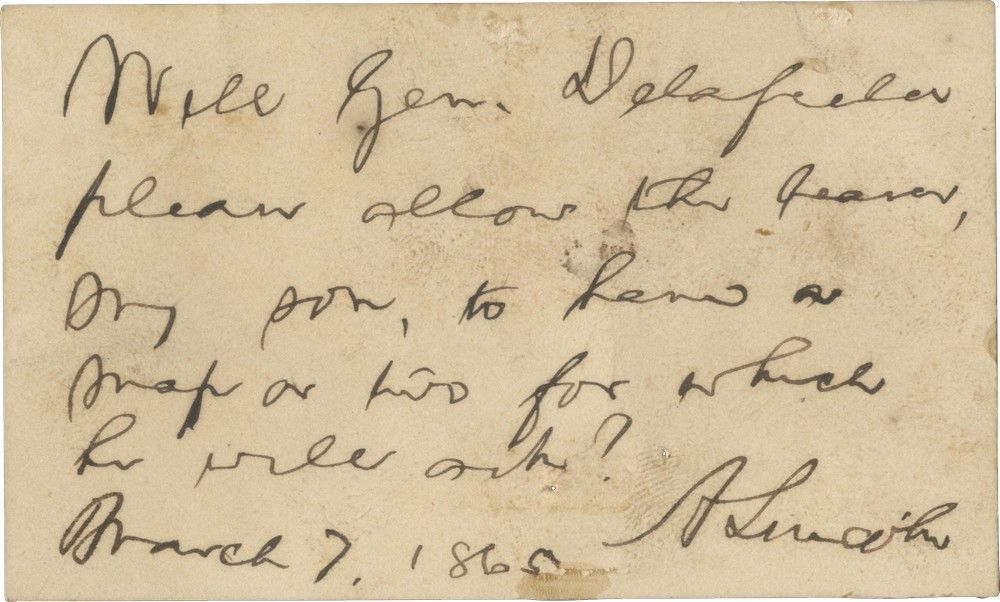 Will Gen. Delafield
please allow the bearer,
my son, to have a
map or two for which
he will ask?
March 7, 1865 A Lincoln